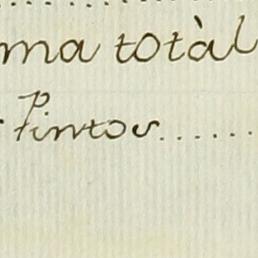 ma totàl
Pintor......